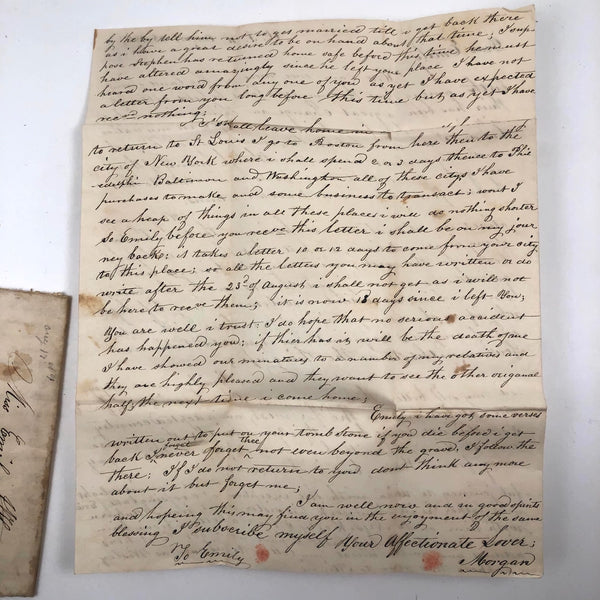 by the by tell him not to get married till i got back there
as i have a great desire to be on hand about that time; I sup-
pose Stephen has returned home safe before this time he must
have altered amazingly since he left your place I have not
heard one word from any one of you as yet I have expected
a letter from you long before this time but as yet I have
rec^d nothing;
I shall leave home in
to return to St Louis I go to Boston from here then to the
city of New York where i shall spend 2 or 3 days thence to Phi
adelphi Baltimore and Washington all of these citys I have
purchases to make and some business to transact; wont I
see a heap of things in all these places i will do nothing shorter
So Emily before you receve this letter i shall be on my jour
ney back; it takes a letter 10 or 12 days to come from your city
to this place; so all the letters you may have written or do
write after the 23^d of August i shall not get as i will not
be here to receve them; it is now 18 days since i left You;
You are well i trust. I do hope that no serious accident
has happened you; if thier has it will be the death of me
I have showed our minatures to a number of my relatives and
they are highly pleased and they want to see the other origanal
half the next time i come home;
Emily i have got some verses
written out to put on your tomb stone if you die before i get
back I never forget thee not even beyond the grave, I follow the
there; If I do not return to You dont think any more
about it but forget me;
I am well now and in good spirits
and hoping this may find you in the enjoyment of the same
blessing I subscribe myself Your Affectionate Lover;
To Emily
Morgan
Miss Emily